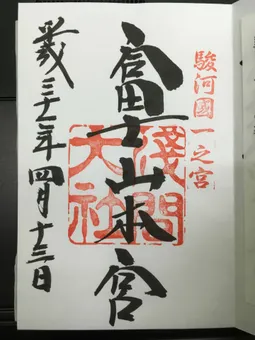 駿河國一之宮
富士山本宮
淺間大社
平成三十一年四月十三日